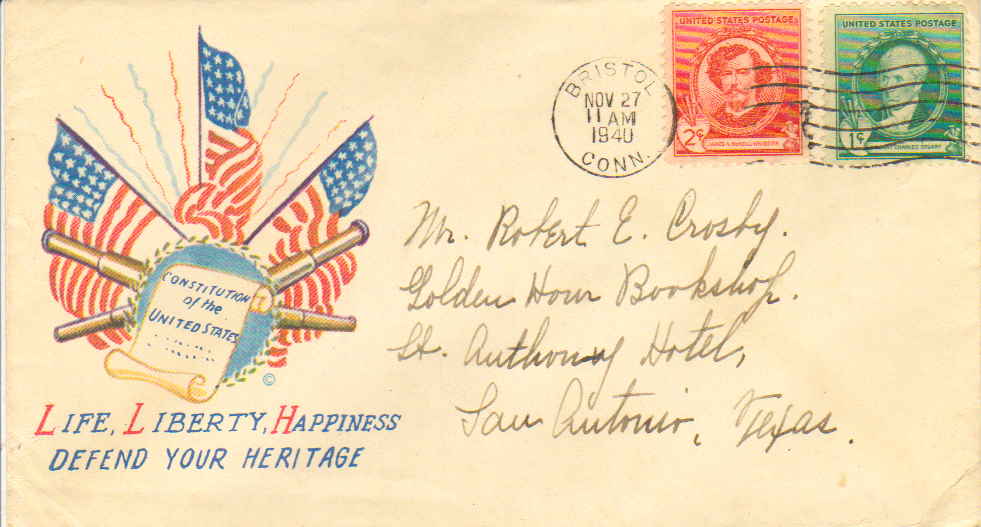 UNITED STATES POSTAGE
2¢
UNITED STATES POSTAGE
1¢
BRISTOL
NOV 27
11 AM
1940
CONN.
CONSTITUTION
of the
UNITED STATES
©
LIFE, LIBERTY, HAPPINESS
DEFEND YOUR HERITAGE
Mr. Robert E. Crosby.
Golden Hour Bookshop.
St. Anthony Hotel,
San Antonio, Texas.